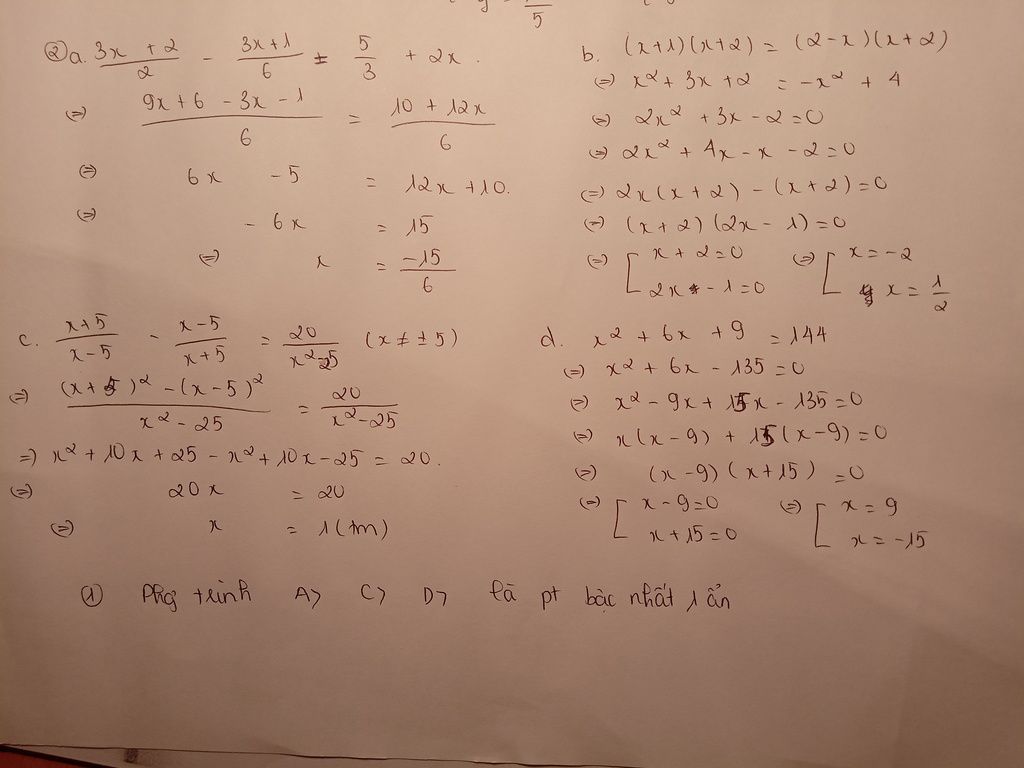 5
② a. (3x + 2)/2 - (3x + 1)/6 = 5/3 + 2x.
⇔ (9x + 6 - 3x - 1)/6 = (10 + 12x)/6
⇔ 6x - 5 = 12x + 10.
⇔ - 6x = 15
⇔ x = -15/6
b. (x+1)(x+2) = (2-x)(x+2)
⇔ x² + 3x + 2 = -x² + 4
⇔ 2x² + 3x - 2 = 0
⇔ 2x² + 4x - x - 2 = 0
⇔ 2x(x+2) - (x+2) = 0
⇔ (x+2)(2x - 1) = 0
⇔ [ x + 2 = 0 ⇔ [ x = -2
2x - 1 = 0 x = 1/2
c. (x+5)/(x-5) - (x-5)/(x+5) = 20/(x²-25) (x ≠ ±5)
⇒ ((x+5)² - (x-5)²)/(x² - 25) = 20/(x² - 25)
⇒ x² + 10x + 25 - x² + 10x - 25 = 20.
⇔ 20x = 20
⇔ x = 1 (tm)
d. x² + 6x + 9 = 144
⇔ x² + 6x - 135 = 0
⇔ x² - 9x + 15x - 135 = 0
⇔ x(x-9) + 15(x-9) = 0
⇔ (x-9)(x+15) = 0
⇔ [ x - 9 = 0 ⇔ [ x = 9
x + 15 = 0 x = -15
① Phg trình A> C> D> là pt bậc nhất 1 ẩn